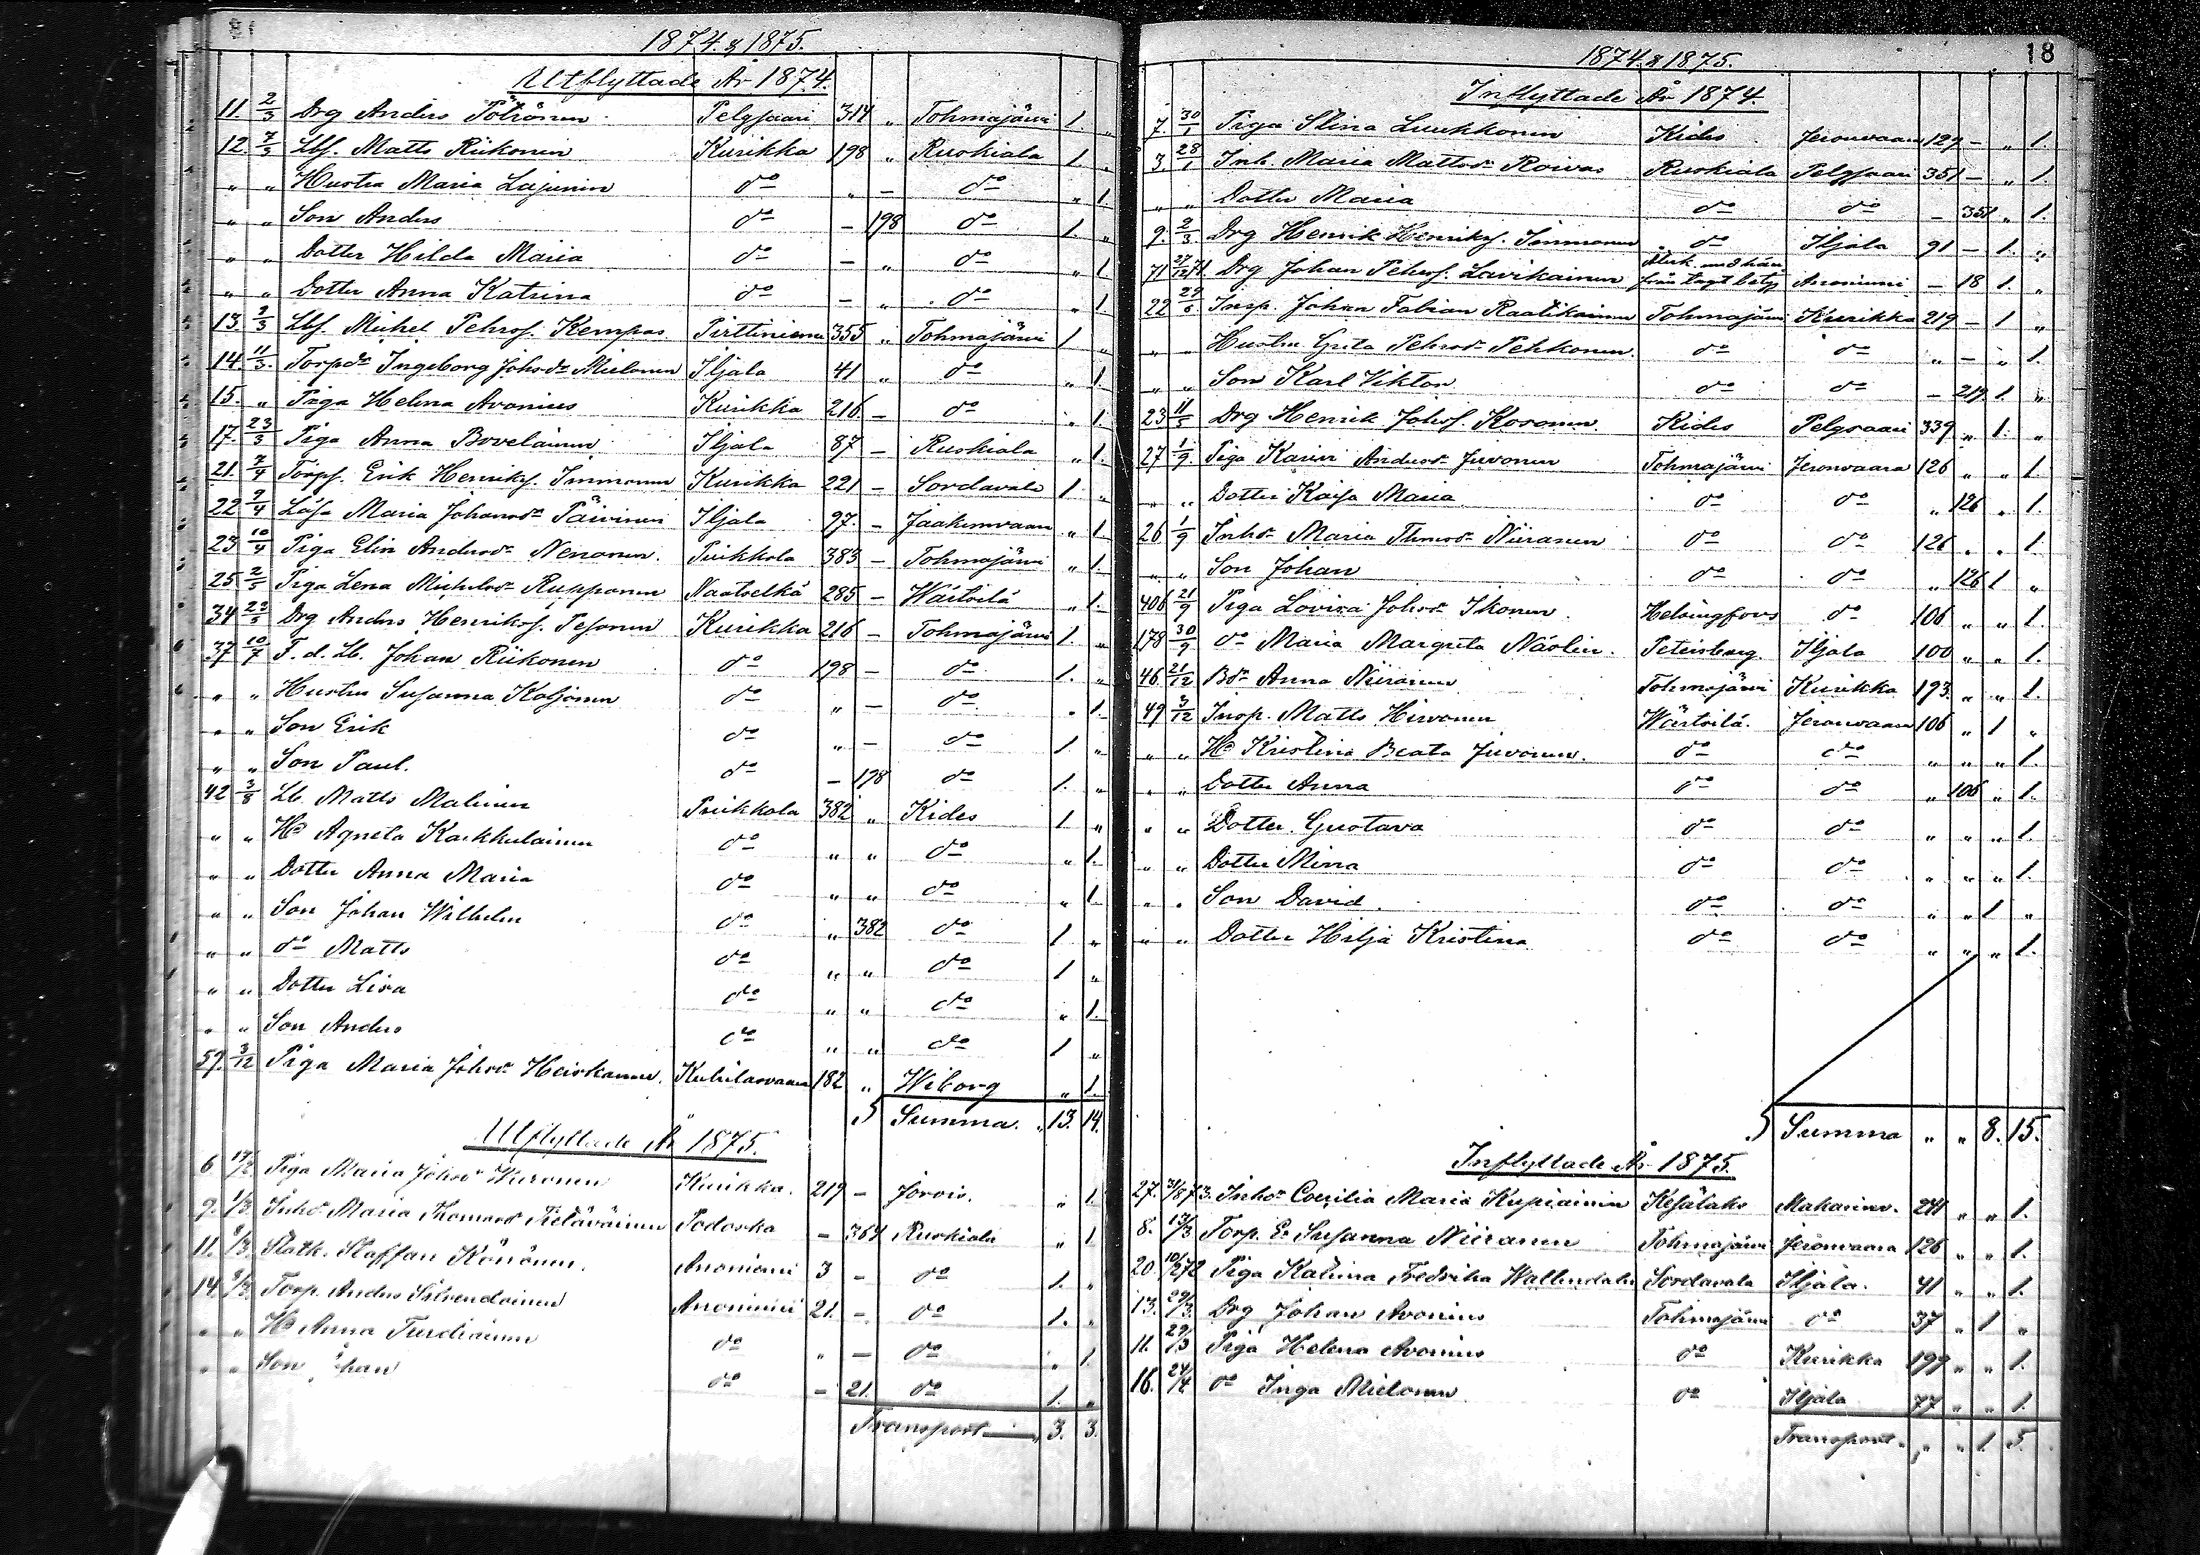 1874 & 1875.
Utflyttade År 1874.
11. 2/3 Drg Anders Pölrönen Pelgjaari 314 „ Tohmajärvi 1. „
12. 7/3 Lbf. Matts Riikonen Kurikka 198 „ Ruskiala 1 „
„ „ Hustru Maria Lajunin do „ — do „ 1.
„ „ Son Anders do — 198 do 1. „
„ „ Dotter Hilda Maria do — „ do „ 1
„ „ Dotter Anna Katrina do — „ do „ 1
13. 9/3 Lbf. Michel Pehrsf. Kempas Pirttiniemi 355 „ Tohmajärvi 1 „
14. 11/3. Torpdr Ingeborg Johsdr Mielonen Iljala 41 „ do „ 1.
15. „ Piga Helena Avonius Kurikka 216 — do „ 1.
17. 23/3 Piga Anna Bovelainen Iljala 87 — Ruskiala „ 1.
21. 7/4 Torpf. Erik Henriksf. Immonen Kurikka 221 — Sordavala 1. „
22 9/4 Lösa Maria Johansdr Päivinen Iljala 97. — Jaakimvaara „ 1.
23 10/4 Piga Elin Andersdr Nenonen. Puikkola 383 — Tohmajärvi „ 1.
25 2/5 Piga Lena Michelsdr Rupponen Naatselkä 285 — Wärtsilä „ 1.
34 23/5 Drg Anders Henriksf. Pesonen Kurikka 216 — Tohmajärvi 1. „
37 10/7 F. d. Lb. Johan Riikonen do 198 — do 1. „
„ „ Hustru Susanna Koljonen do „ — do „ 1.
„ „ Son Erik do „ — do 1 „
„ „ Son Paul. do — 198 do 1. „
42 3/8 Lb. Matts Malinen Puikkola 382 „ Kides 1 „
„ „ Hu Agneta Karkkulainen do „ „ do „ 1.
„ „ Dotter Anna Maria do „ „ do „ 1
„ „ Son Johan Wilhelm do „ 382 do 1 „
„ „ do Matts do „ „ do 1 „
„ „ Dotter Lisa do „ „ do „ 1.
„ „ Son Anders do „ „ do 1 „
59. 3/12 Piga Maria Johsdr Heiskanen. Kuhilasvaara 182 „ Wiborg „ 1.
Summa. „ 13. 14.
Utflyttade År 1875.
6 17/2 Piga Maria Johsdr Kuronen Kurikka. 219 — Jorois. „ 1
9. 1/3. Inhdr Maria Thomasdr Pietäväinen Podoska — 364 Ruskiala „ 1.
11. 9/3. Statk. Staffan Könönen. Anonieni 3 — do 1. „
14 9/3. Torp. Anders Silvendoinen Anonieni 21. — do 1. „
„ „ Hu Anna Turdiainen do „ — do „ 1
„ „ Son Johan do — 21. do 1. „
Transport „ 3. 3.
18
1874 & 1875.
Inflyttade År 1874.
7. 30/1 Piga Stina Luukkonen Kides Jeronvaara 129 — „ 1.
3. 28/1 Inh. Maria Mattsdr Roivas Ruskiala Pelgjaari 351 — „ 1.
„ „ Dotter Maria do do — 351 „ 1.
9. 2/3. Drg Henrik Henriksf. Immonen do Iljala 91 — 1. „
71 27/12 71. Drg Johan Pehrsf. Lavikainen Återk. med här från tagt betyg Anonieni — 18 1. „
22 29/6 Insp. Johan Fabian Raatikainen Tohmajärvi Kurikka 219 — 1 „
„ „ Hustru Greta Pehrsdr Pehkonen. do do „ — „ 1.
„ „ Son Karl Viktor do do — 219. 1. „
23 11/5 Drg Henrik Johsf. Kosonen. Kides Pelgjaari 339 „ 1. „
27 1/9. Piga Karin Andersdr Juvonen Tohmajärvi Jeronvaara 126 „ „ 1
„ „ Dotter Kaisa Maria do do „ 126 „ 1.
26 1/9 Inhdr Maria Thomsdr Niiranen do do 126 „ „ 1.
„ „ Son Johan do do „ 126 1 „
406 21/9 Piga Lovisa Johsdr Ikonen Helsingfors do 106 „ „ 1.
178 30/9 do Maria Margreta Näslin. Petersburg. Iljala 100 „ „ 1.
46. 21/12 Bdr Anna Niiranen Tohmajärvi Kurikka 193. „ „ 1.
49 3/12 Insp. Matts Hirvonen Wärtsilä. Jeronvaara 106 „ 1 „
„ „ Hu Kristina Beata Juvonen. do do „ „ „ 1.
„ „ Dotter Anna do do „ 106 „ 1.
„ „ Dotter. Gustava do do „ „ „ 1.
„ „ Dotter Mina do do „ „ „ 1.
„ „ Son David. do do „ „ 1 „
„ „ Dotter Hilja Kristina do do „ „ „ 1.
Summa „ „ 8. 15.
Inflyttade År 1875.
27. 31/8 73. Inhdr Coecilia Maria Kupiainen Kesälaks Makariev. 241 „ „ 1.
8. 13/3 Torp. E. Susanna Niiranen Tohmajärvi Jeronvaara 126 „ „ 1.
20 10/2 72 Piga Katrina Fredrika Wallendahr Sordavala Iljala. 41 „ „ 1.
13. 29/3. Drg Johan Avonius Tohmajärvi do 37 „ 1 „
11. 29/3 Piga Helena Avonius do Kurikka 199 „ „ 1.
16. 24/4 do Inga Mielonen do Iljala 77 „ „ 1.
Transport „ „ 1 5.